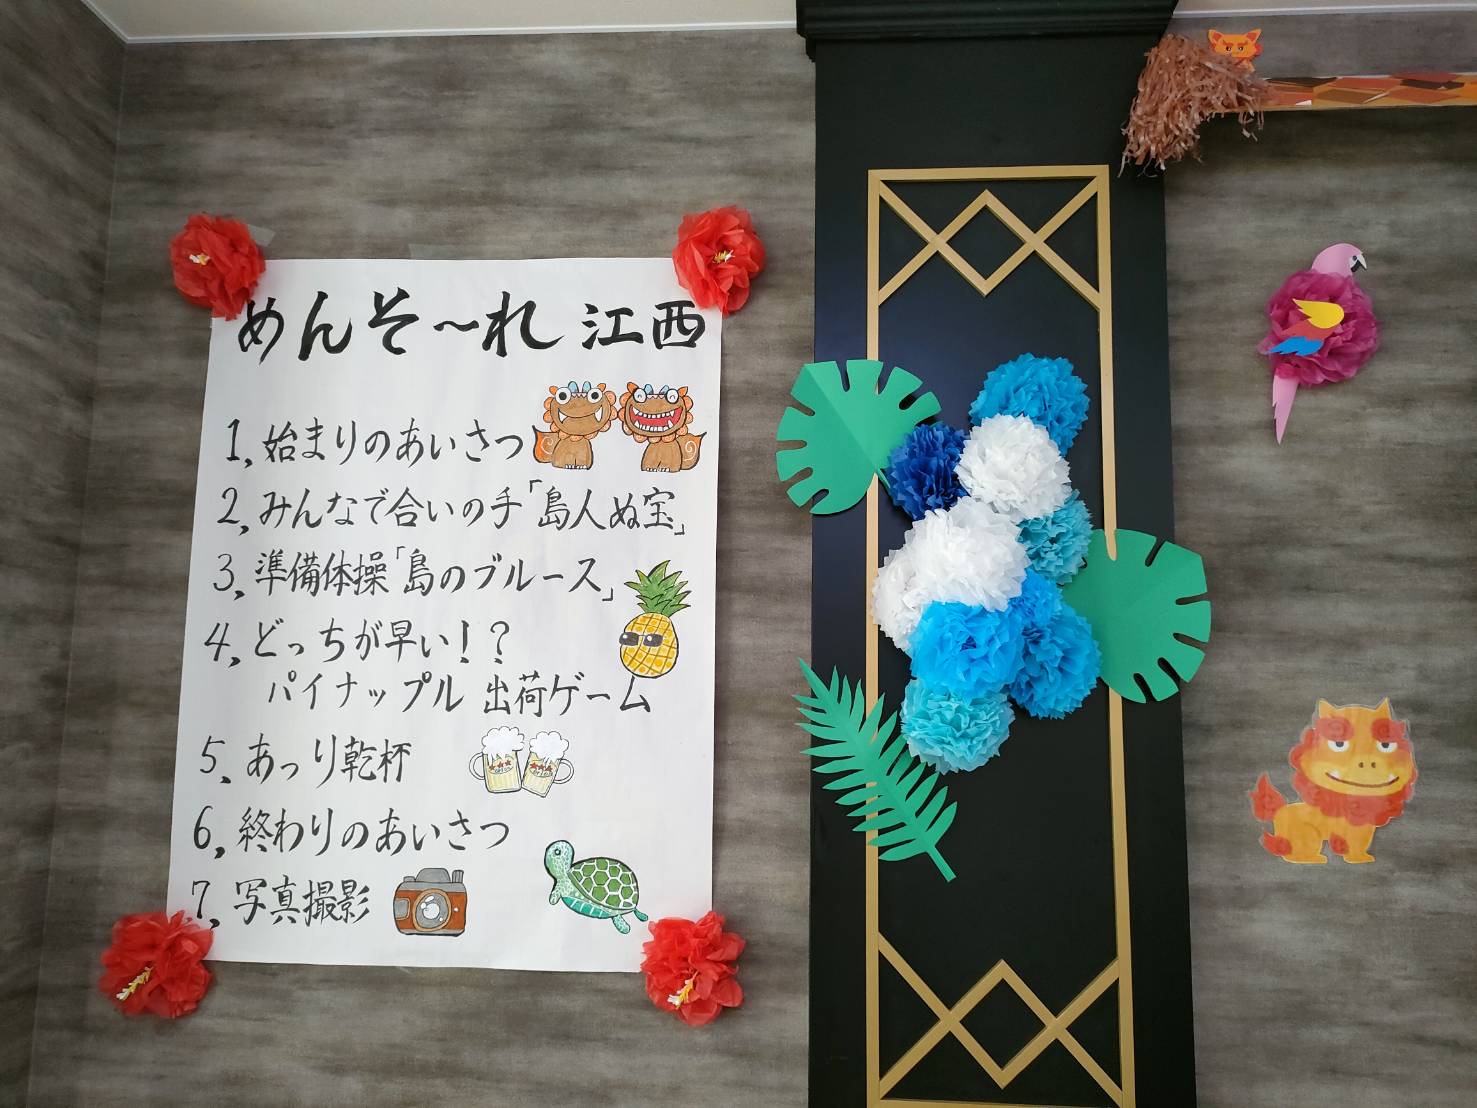 めんそ〜れ 江西
1, 始まりのあいさつ
2, みんなで合いの手「島人ぬ宝」
3, 準備体操「島のブルース」
4, どっちが早い!?
パイナップル 出荷ゲーム
5、あっり乾杯
6, 終わりのあいさつ
7, 写真撮影